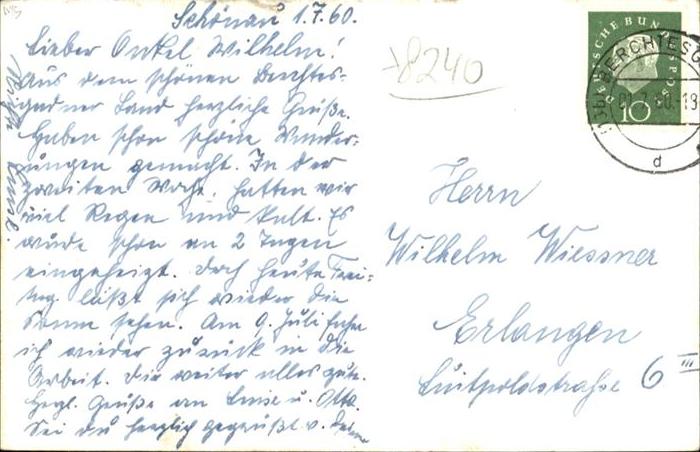 Schönau 1.7.60.
Lieber Onkel Wilhelm!
Aus dem schönen Berchtes-
gadner Land herzliche Grüße.
Haben schon schöne Wander-
ungen gemacht. In der
zweiten Woche, hatten wir
viel Regen und kalt. Es
wurde schon an 2 Tagen
eingeheizt. Doch heute Frei-
tag läßt sich wieder die
Sonne sehen. Am 9. Juli fahre
ich wieder zurück in die
Arbeit. Dir weiter alles gute.
Hrzl. Grüße an Luise u. Otto.
Sei du herzlich gegrüßt v. Deiner
8240
DEUTSCHE BUNDESPOST
10
BERCHTESG
01.7.60.-19
d
Herrn
Wilhelm Wiessner
Erlangen
Luitpoldstraße 6 III